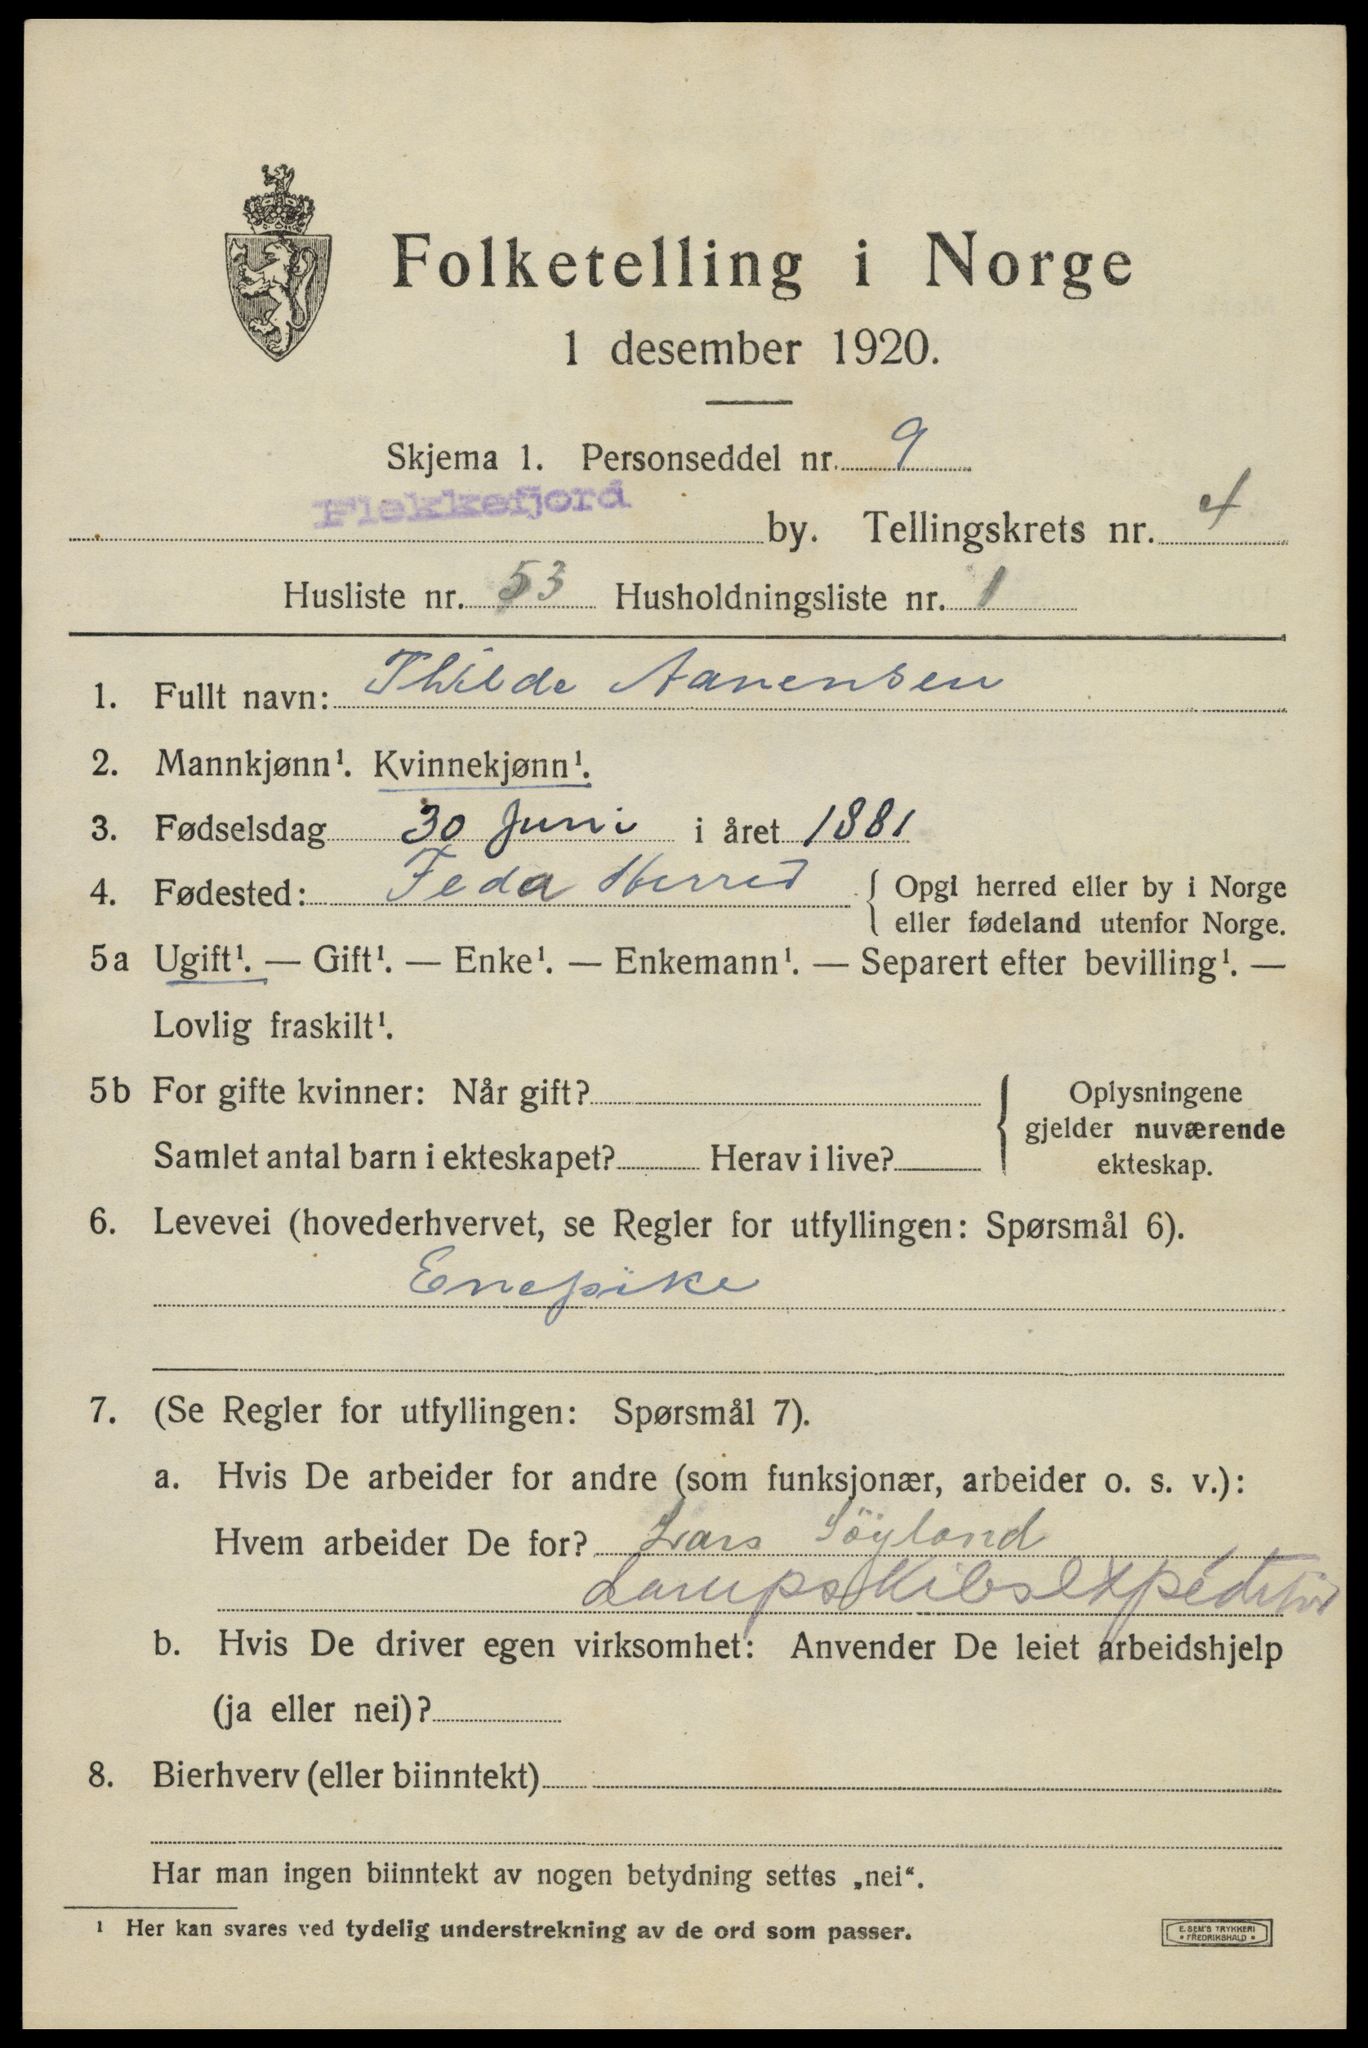 Folketelling i Norge
1 desember 1920.
Skjema 1. Personseddel nr. 9
Flekkefjord by. Tellingskrets nr. 4
Husliste nr. 53 Husholdningsliste nr. 1
1. Fullt navn: Thilde Aanensen
2. Mannkjønn¹. Kvinnekjønn¹.
3. Fødselsdag 30 Juni i året 1881
4. Fødested: Feda Herred { Opgi herred eller by i Norge
eller fødeland utenfor Norge.
5a Ugift¹. — Gift¹. — Enke¹. — Enkemann¹. — Separert efter bevilling¹. —
Lovlig fraskilt¹.
5b For gifte kvinner: Når gift?
Samlet antal barn i ekteskapet? Herav i live?
Oplysningene
gjelder nuværende
ekteskap.
6. Levevei (hovederhvervet, se Regler for utfyllingen: Spørsmål 6).
Enepike
7. (Se Regler for utfyllingen: Spørsmål 7).
a. Hvis De arbeider for andre (som funksjonær, arbeider o. s. v.):
Hvem arbeider De for? Lars Söyland
Dampskibsexpéditør
b. Hvis De driver egen virksomhet: Anvender De leiet arbeidshjelp
(ja eller nei)?
8. Bierhverv (eller biinntekt)
Har man ingen biinntekt av nogen betydning settes „nei“.
¹ Her kan svares ved tydelig understrekning av de ord som passer.
E. SEM'S TRYKKERI
* FREDRIKSHALD *